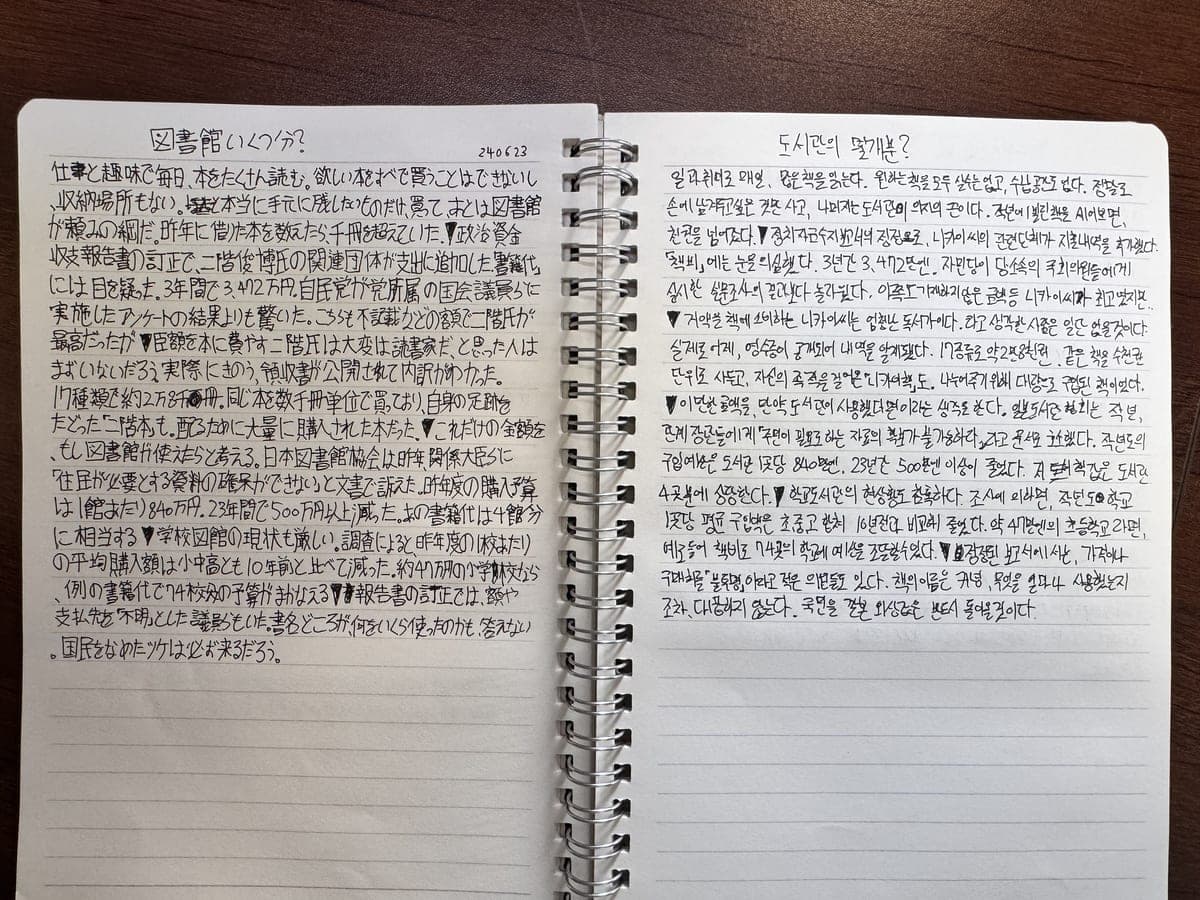 図書館いくつ分?
240623
仕事と趣味で毎日、本をたくさん読む。欲しい本をすべて買うことはできないし
、収納場所もない。本当に手元に残したいものだけ、買って、あとは図書館
が頼みの綱だ。昨年に借りた本を数えたら、千冊を超えていた。▼政治資金
収支報告書の訂正で、二階俊博氏の関連団体が支出に追加した「書籍代」
には目を疑った。3年間で3,472万円。自民党が党所属の国会議員らに
実施したアンケートの結果よりも驚いた。こちらも不記載などの額で二階氏が
最高だったが▼巨額を本に費やす二階氏は大変な読書家だ、と思った人は
まずいないだろう。実際にきのう、領収書が公開されて内訳がわかった。
17種類で約2万8千冊。同じ本を数千冊単位で買っており、自身の足跡を
たどった「二階本」も。配るために大量に購入された本だった。▼これだけの金額を
、もし図書館が使えたらと考える。日本図書館協会は昨年、関係大臣らに
「住民が必要とする資料の確保ができない」と文書で訴えた。昨年度の購入予算
は1館あたり840万円。23年間で500万円以上減った。あの書籍代は4館分
に相当する▼学校図館の現状も厳しい。調査によると、昨年度の1校あたり
の平均購入額は小中高とも10年前と比べて減った。約47万円の小学校なら
、例の書籍代で74校分の予算がまかなえる▼報告書の訂正では、額や
支払先を「不明」とした議員もいた。書名どころか、何をいくら使ったのかも、答えない
。国民をなめたツケは必ず来るだろう。
도서관의 몇개분?
일과 취미로 매일, 많은 책을 읽는다. 원하는 책을 모두 살수는 없고, 수납공간도 없다. 정말로
손에 남겨두고싶은 것만 사고, 나머지는 도서관이 의지의 끈이다. 작년에 빌린책을 세어보면,
천권을 넘어있다.▼정치자금수지보고서의 정정으로, 니카이씨의 관련단체가 지출내역을 추가했다.
「책비」에는 눈을 의심했다. 3년간 3,472만엔. 자민당이 당소속의 국회의원들에게
실시한 설문조사의 결과보다 놀라웠다. 이쪽도 기재하지않은 금액등 니카이씨가 최고였지만..
▼거액을 책에 소비하는 니카이씨는 엄청난 독서가이다. 라고 생각한 사람은 일단 없을것이다
실제로 어제, 영수증이 공개되어 내역을 알게됐다. 17종류로 약2만8천권. 같은 책을 수천권
단위로 사두고, 자신의 족적을 걸어온 「니카이책」도. 나누어주기위해 대량으로 구입된 책이었다.
▼이만한 금액을, 만약 도서관이 사용했다면이라는 생각을 한다. 일본도서관협회는 작년,
관계 장관들에게「주민이 필요로 하는 자료의 확보가 불가능하다」라고 문서로 호소했다. 작년도의
구입예산은 도서관 1곳당 840만엔. 23년간 500만엔 이상이 줄었다. 저 책값은 도서관
4곳분에 상당한다.▼학교도서관의 현상황도 참혹하다. 조사에 의하면, 작년도 학교
1곳당 평균 구입액은 초중고 합쳐 10년전과 비교해 줄었다. 약 47만엔의 초등학교라면,
예를들어 책비로 74곳의 학교에 예산을 조달할수있다.▼정정된 보고서에서는, 가격이나
구매처를「불투명」이라고 적은 의원들도 있다. 책의이름은 커녕, 무엇을 얼마나 사용했는지
조차, 대답하지 않는다. 국민을 깔본 외상값은 반드시 돌아올것이다.